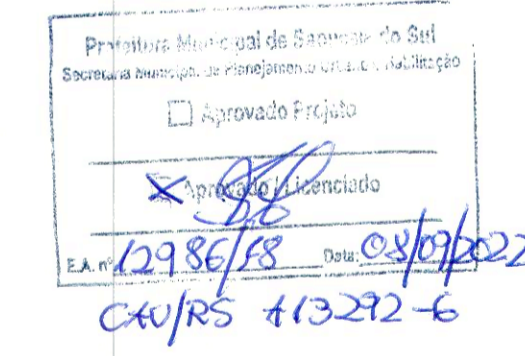 Prefeitura Municipal de Sapucaia do Sul
Secretaria Municipal de Planejamento Urbano e Habilitação
Aprovado Projeto
X Aprovado / Licenciado
E.A. nº 12986/18 Data: 08/09/2022
CAU/RS A13292-6